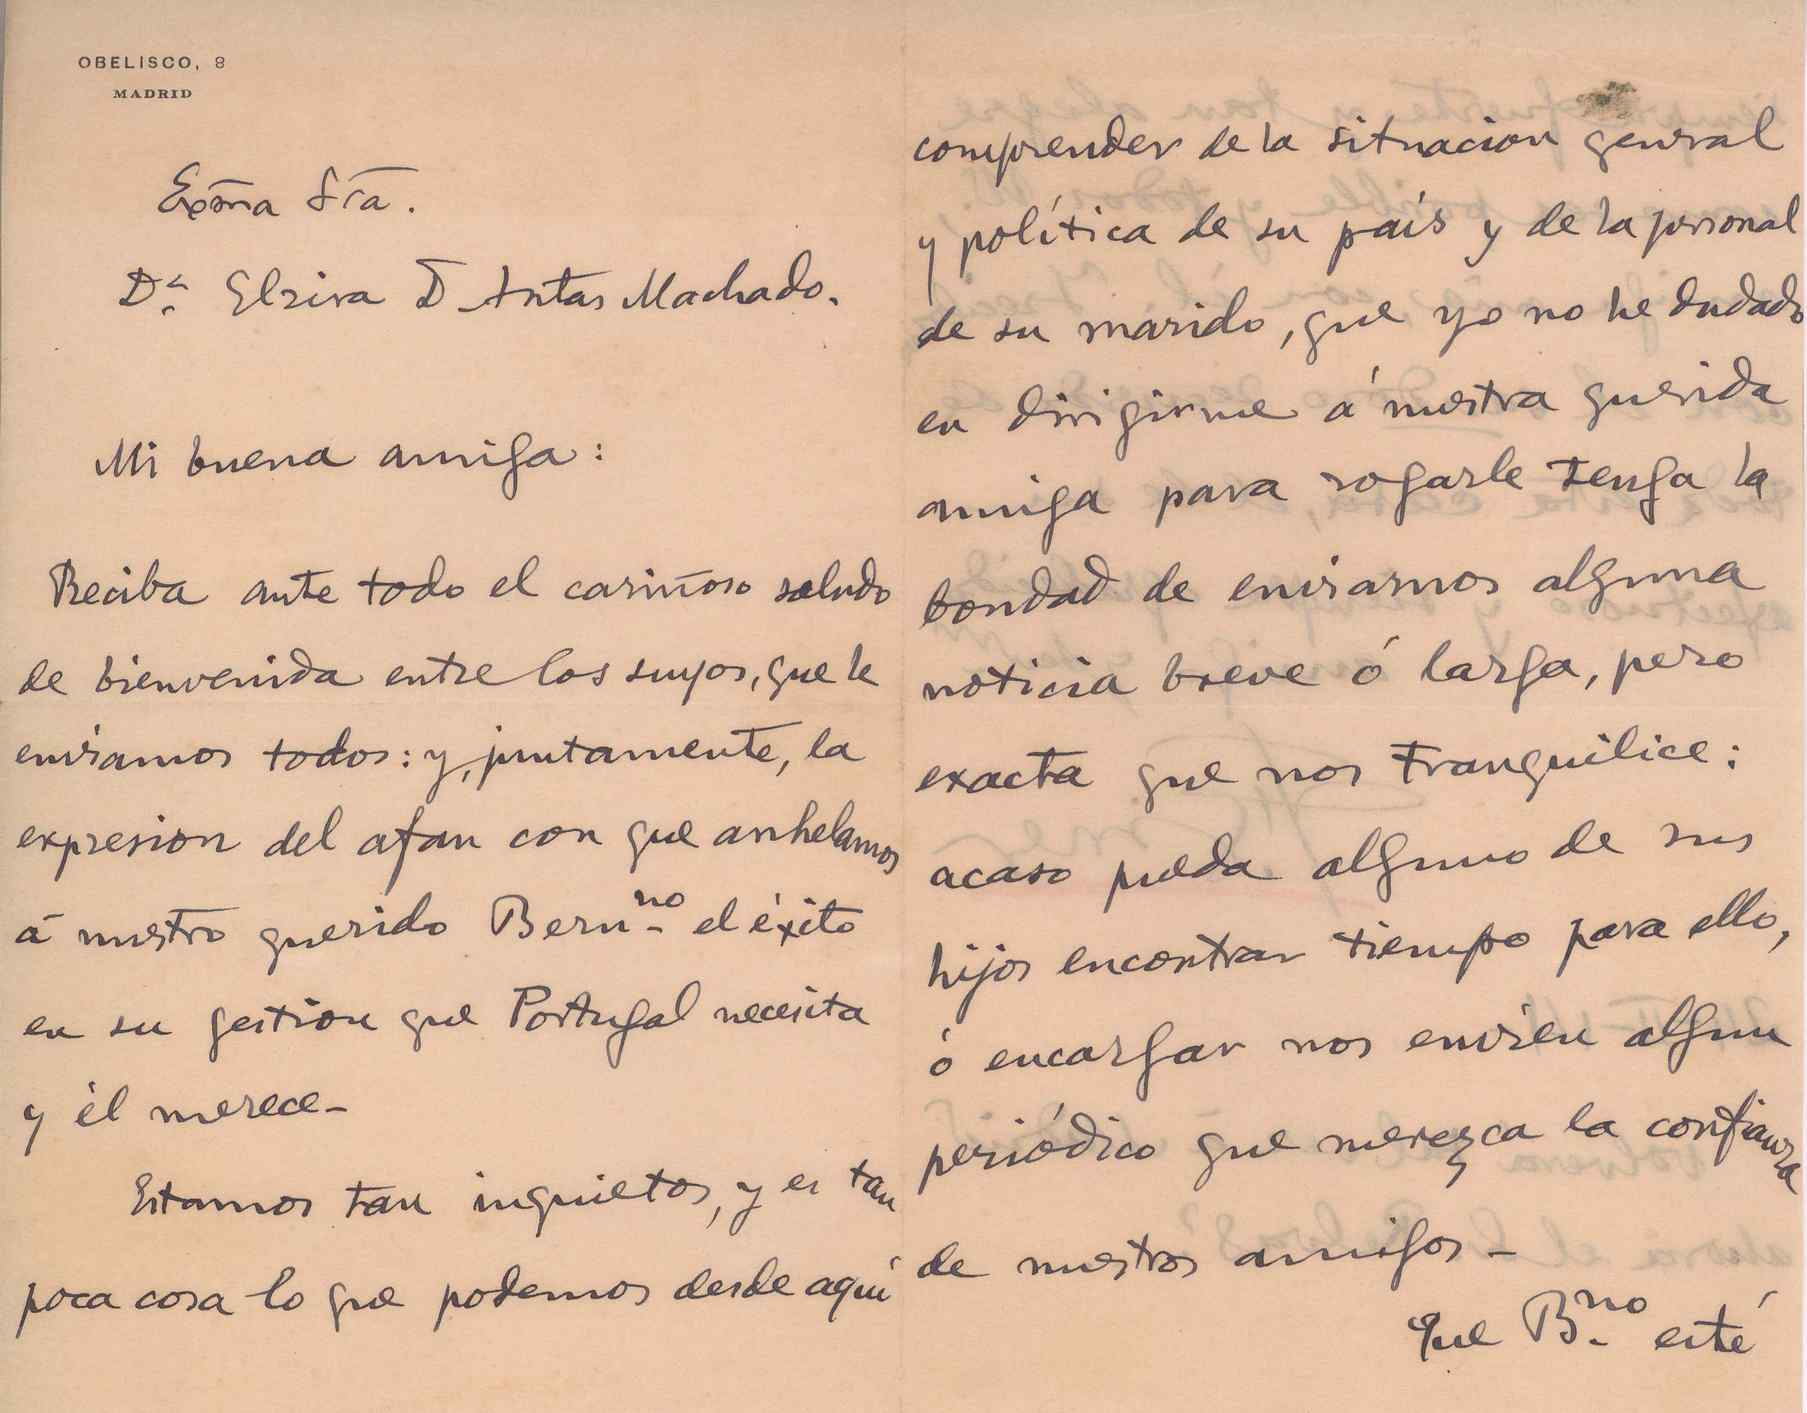 OBELISCO, 8
MADRID
Exma Sra.
Da. Elzira D Antas Machado.
Mi buena amiga:
Reciba ante todo el cariñoso saludo
de bienvenida entre los suyos, que le
enviamos todos: y, juntamente, la
expresion del afan con que anhelamos
á nuestro querido Bern.no el éxito
en su gestion que Portugal necesita
y él merece-
Estamos tan inquietos, y es tan
poca cosa lo que podemos desde aquí
comprender de la situacion general
y política de su país y de la personal
de su marido, que yo no he dudado
en dirigirme á nuestra querida
amiga para rogarle tenga la
bondad de enviarnos alguna
noticia breve ó larga, pero
exacta que nos tranquilice:
acaso pueda alguno de sus
hijos encontrar tiempo para ello,
ó encargar nos envien algun
periódico que merezca la confianza
de nuestros amigos-
Que B.no esté